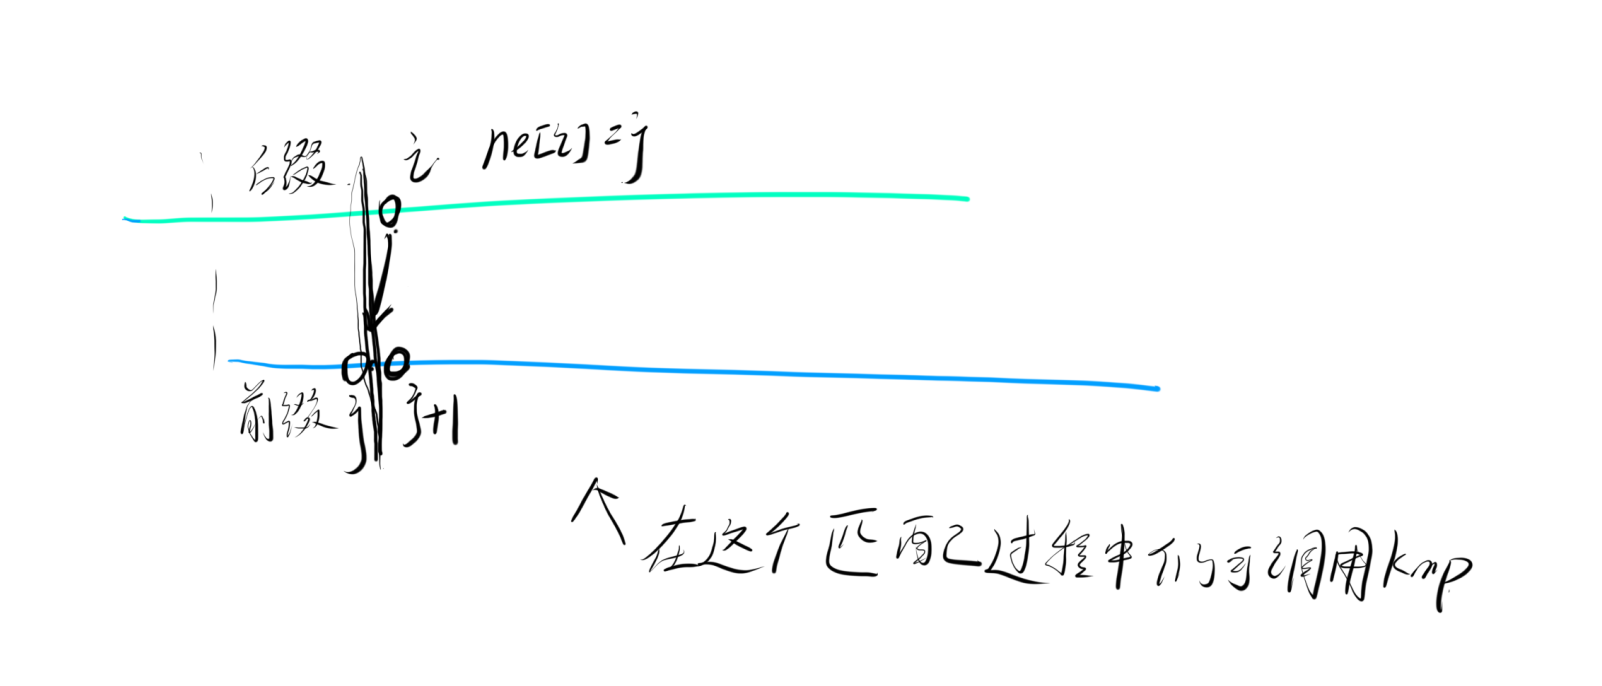 后缀 i ne[i]=j
前缀 j j+1
在这个匹配过程中仍可调用kmp